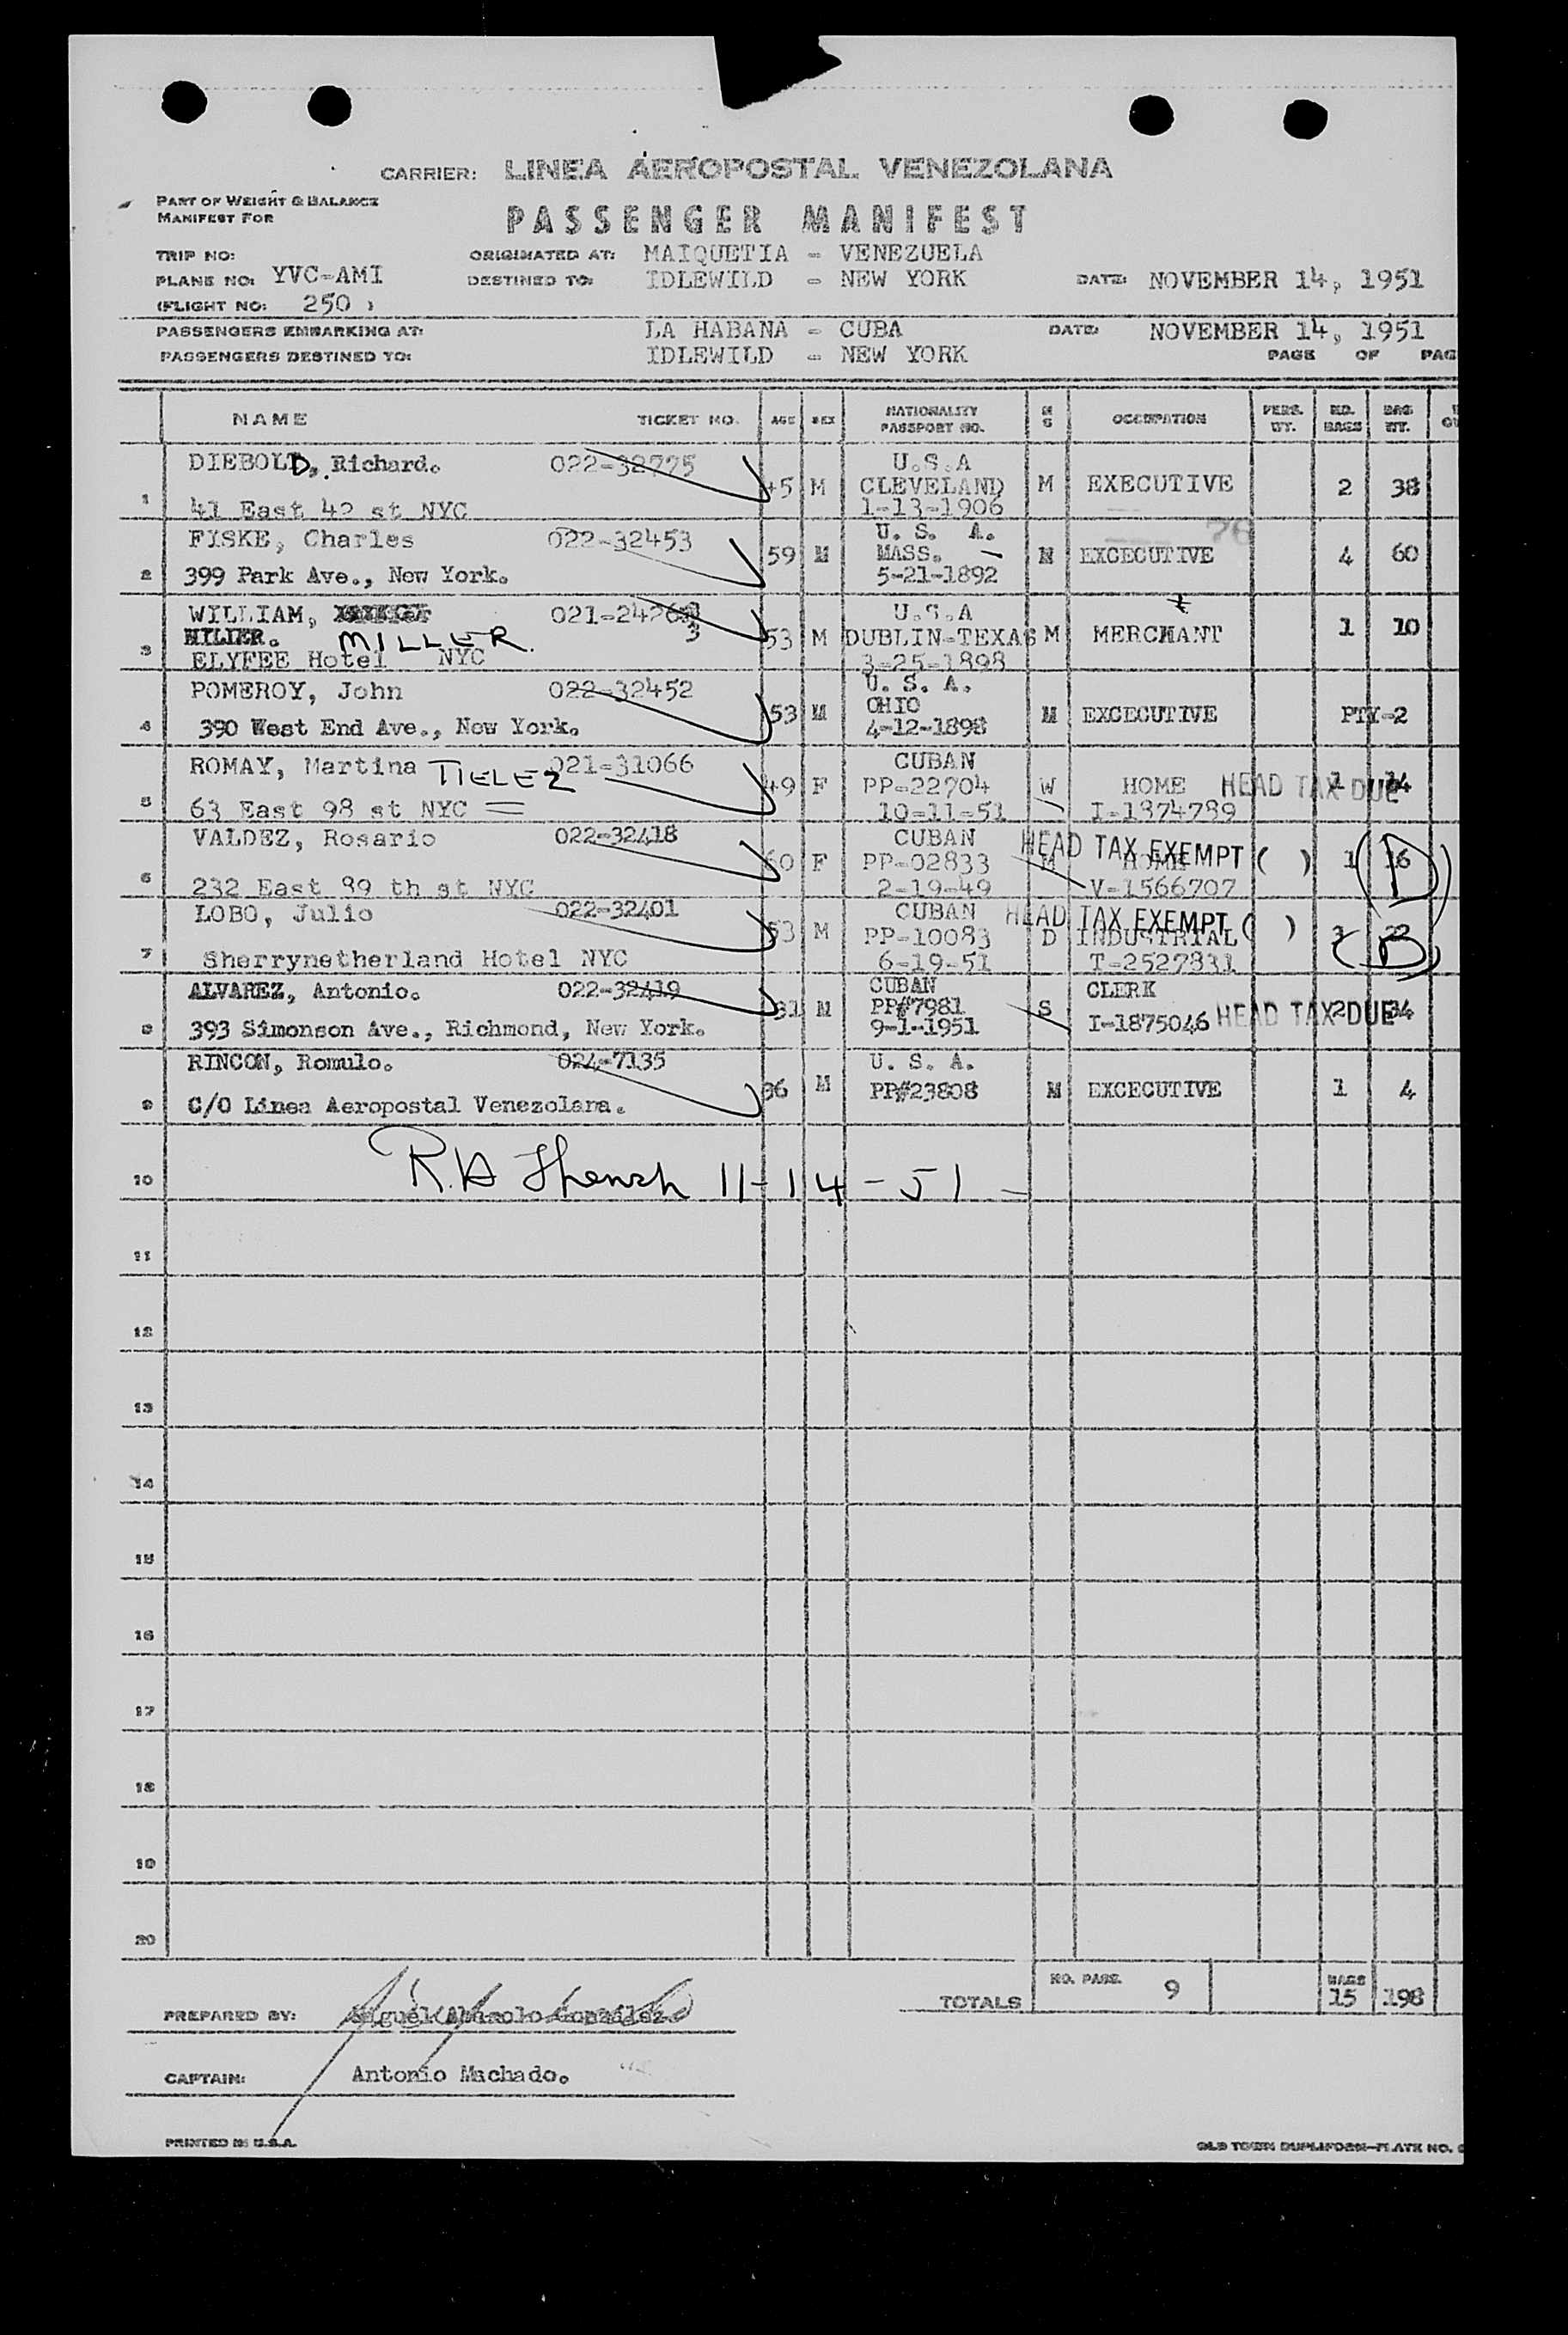 CARRIER: LINEA AEROPOSTAL VENEZOLANA
PART OF WEIGHT & BALANCE
MANIFEST FOR
PASSENGER MANIFEST
TRIP NO: ORIGINATED AT: MAIQUETIA - VENEZUELA
PLANE NO: YVC-AMI DESTINED TO: IDLEWILD - NEW YORK DATE: NOVEMBER 14, 1951
(FLIGHT NO: 250 )
PASSENGERS EMBARKING AT: LA HABANA - CUBA DATE: NOVEMBER 14, 1951
PASSENGERS DESTINED TO: IDLEWILD - NEW YORK PAGE OF PAG
NAME TICKET NO. AGE SEX NATIONALITY PASSPORT NO. M S OCCUPATION PERS. WT. NO. BAGS BAG WT.
1 DIEBOLD, Richard. 022-32775 45 M U.S.A CLEVELAND 1-13-1906 M EXECUTIVE 2 38
41 East 42 st NYC
76
2 FISKE, Charles 022-32453 59 M U. S. A. MASS. 5-21-1892 M EXCECUTIVE 4 60
399 Park Ave., New York.
3 WILLIAM, 53 M U.S.A DUBLIN-TEXAS 3-25-1898 M MERCHANT 1 10
MILLER.
ELYFEE Hotel NYC
4 POMEROY, John 022-32452 53 M U. S. A. OHIO 4-12-1898 M EXCECUTIVE PTY-2
390 West End Ave., New York.
5 ROMAY, Martina TIELEZ 021-31066 49 F CUBAN PP-22704 10-11-51 W HOME I-1874789 HEAD TAX DUE 1 14
63 East 98 st NYC
6 VALDEZ, Rosario 022-32418 60 F CUBAN PP-02833 2-19-49 HOME V-1566707 HEAD TAX EXEMPT ( ) 1 16 (D)
232 East 89 th st NYC
7 LOBO, Julio 022-32401 53 M CUBAN PP-10083 6-19-51 D INDUSTRIAL T-2527831 HEAD TAX EXEMPT ( ) 3 22 (D)
Sherrynetherland Hotel NYC
8 ALVAREZ, Antonio. 022-32419 31 M CUBAN PP#7981 9-1-1951 S CLERK I-1875046 HEAD TAX DUE 2 34
393 Simonson Ave., Richmond, New York.
9 RINCON, Romulo. 024-7135 36 M U. S. A. PP#23808 M EXCECUTIVE 1 4
C/O Linea Aeropostal Venezolana.
10 11-14-51
11
12
13
14
15
16
17
18
19
20
TOTALS NO. PASS. 9 BAGS 15 198
PREPARED BY: González
CAPTAIN: Antonio Machado.
PRINTED IN U.S.A. OLD TOWN DUPLIFORM-PLATE NO.